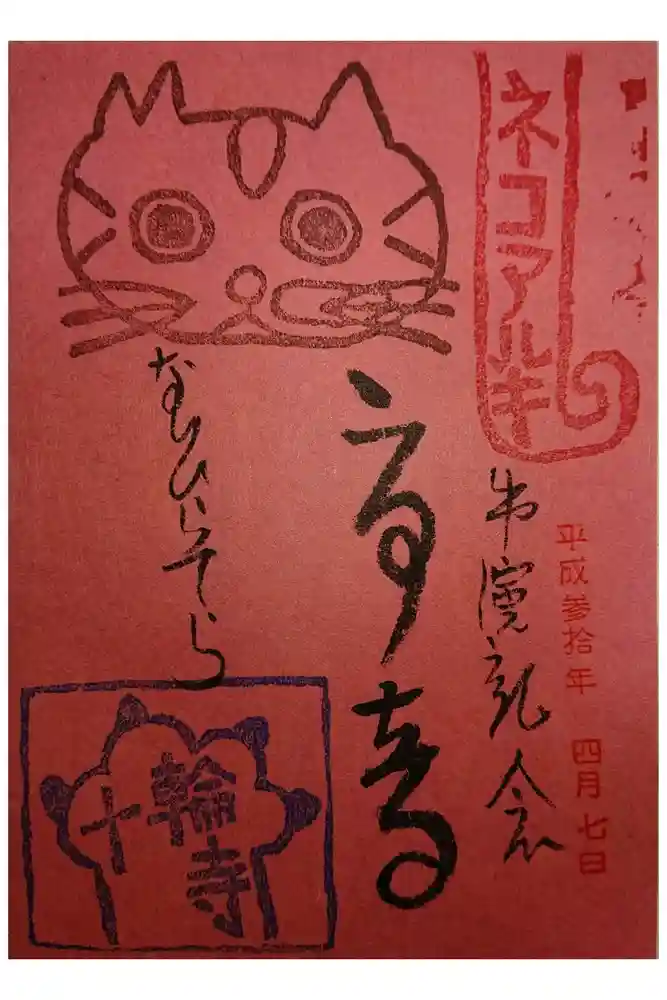 ネコアルキ
出演記念
平成参拾年 四月七日
なりひらてら
十輪寺